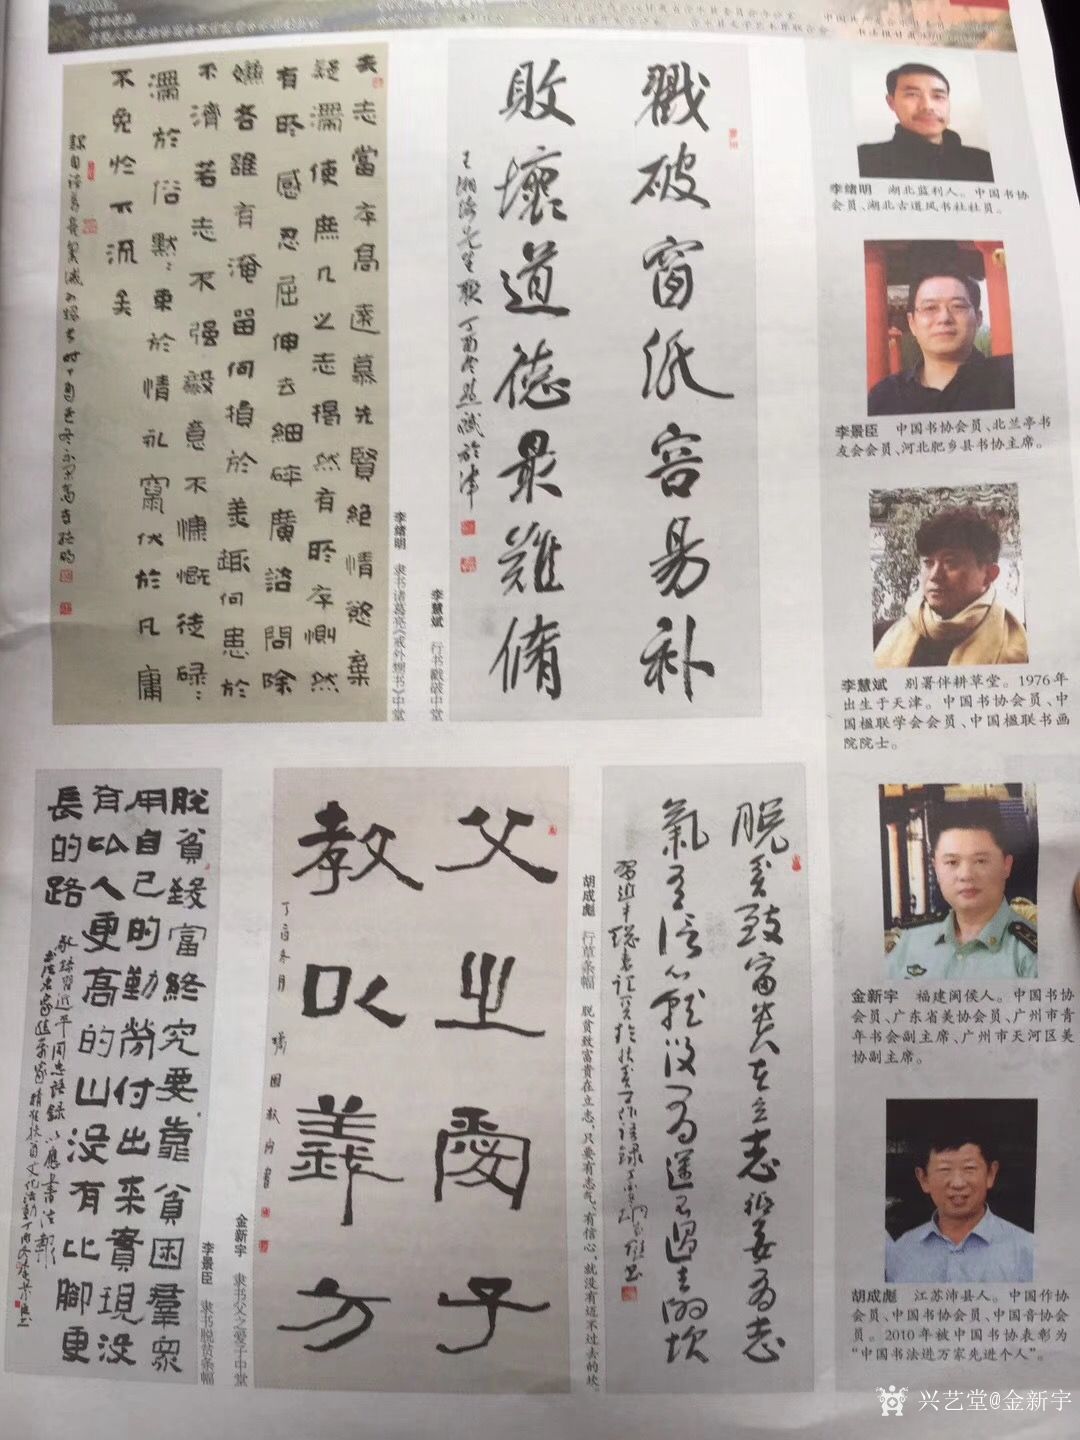 夫志當存高遠慕先賢絕情慾棄
疑滯使庶几之志揭然有所存惻然
有所感忍屈伸去細碎廣諮問除
嫌吝雖有淹留何損於美趣何患於
不濟若志不强毅意不慷慨徒碌:
滯於俗默:束於情永竄伏於凡庸
不免於下流矣
李绪明 隶书诸葛亮《戒外甥书》中堂
戳破窗纸容易补
敗壞道德最難脩
李慧斌 行书戳破中堂
李绪明 湖北监利人。中国书协
会员、湖北古道风书社社员。
李景臣 中国书协会员、北兰亭书
友会会员、河北肥乡县书协主席。
李慧斌 别署伴耕草堂。1976年
出生于天津。中国书协会员、中
国楹联学会会员、中国楹联书画
院院士。
脫貧致富終究要靠貧困羣眾
用自己的勤勞付出来實現没
有比人更高的山没有比腳更
長的路
李景臣 隶书脱贫条幅
父之愛子
教以義方
金新宇 隶书父之爱子中堂
脱贫致富贵在立志只要有志
氣有信心就没有迈不过去的坎
胡成彪 行草条幅 脱贫致富贵在立志，只要有志气、有信心，就没有迈不过去的坎。
金新宇 福建闽侯人。中国书协
会员、广东省美协会员、广州市青
年书会副主席、广州市天河区美
协副主席。
胡成彪 江苏沛县人。中国作协
会员、中国书协会员、中国音协会
员。2010年被中国书协表彰为
“中国书法进万家先进个人”。
兴艺堂@金新宇